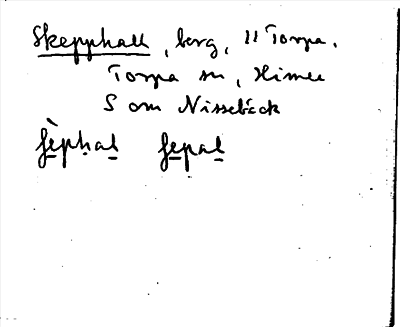 Skepphall, berg, 11 Torpa.
Torpa sn, Himle
S om Nissebäck
fèphal fepal